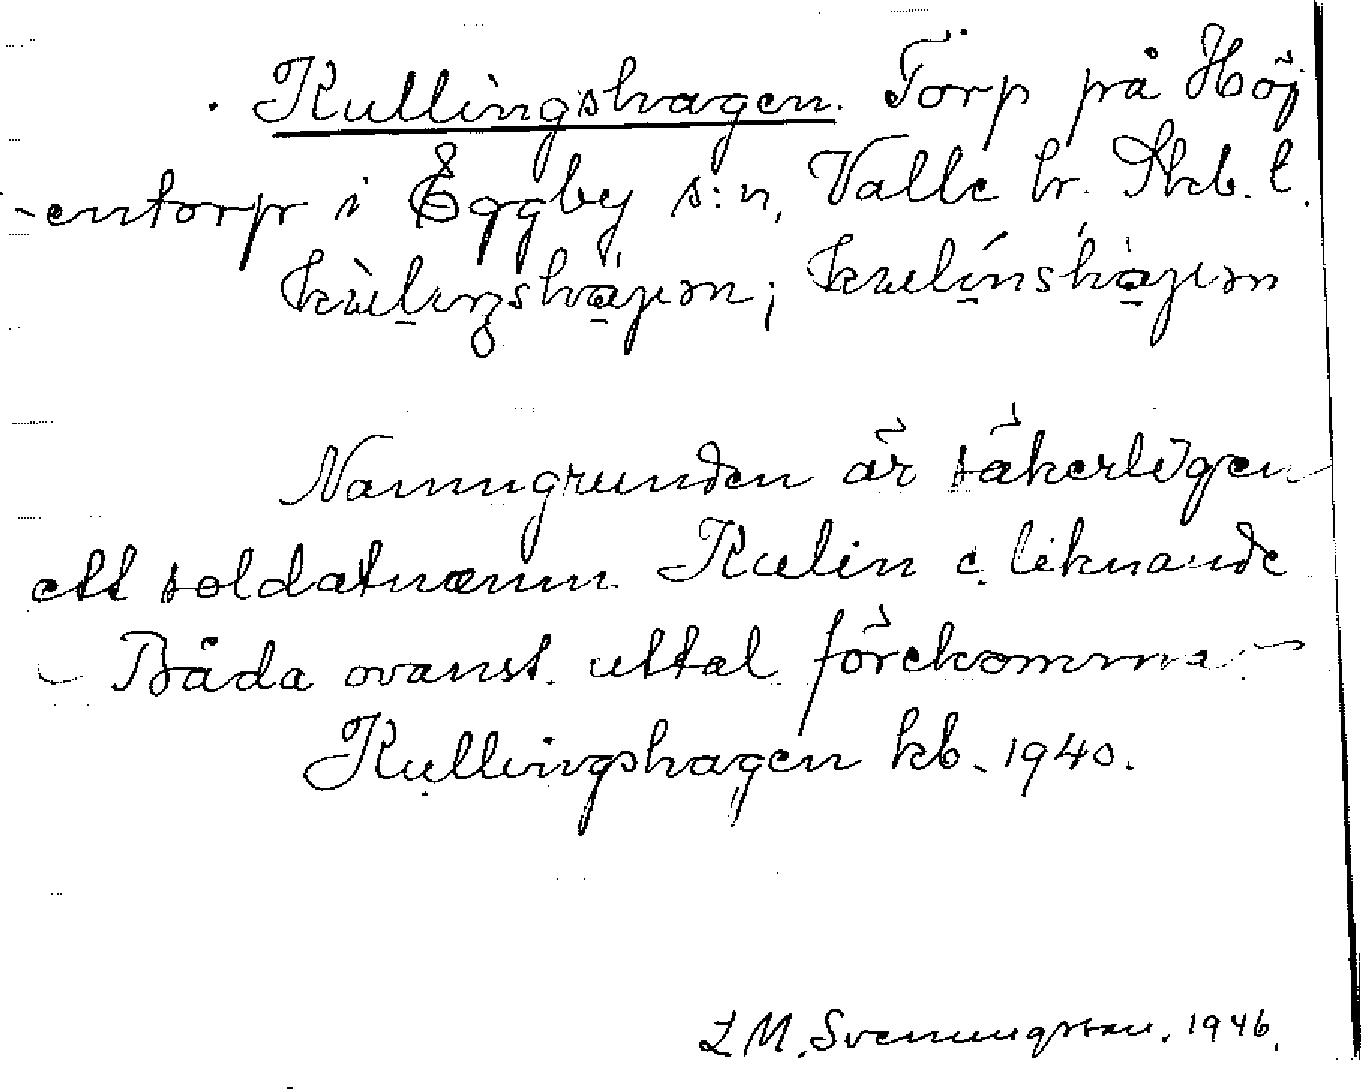 Kullingshagen. Torp på Höj
-entorp i Eggby s:n, Valle hr. Skb. l.
kùlıŋshɑ̀γən; kulínshɑ̀γən
Namngrunden är säkerligen
ett soldatnamn Kulin e. liknande
- Båda ovanst. uttal förekomma -
Kullingshagen kb. 1940.
L M. Svenungsson. 1946.